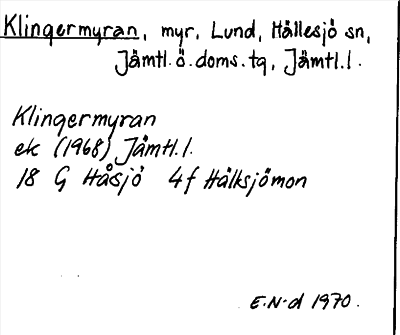 Klingermyran, myr, Lund, Hällesjö sn,
Jämtl. ö. doms. tg, Jämtl. l.
Klingermyran
ek (1968) Jämtl. l.
18 G Håsjö 4f Hälksjömon
E.N-d 1970.